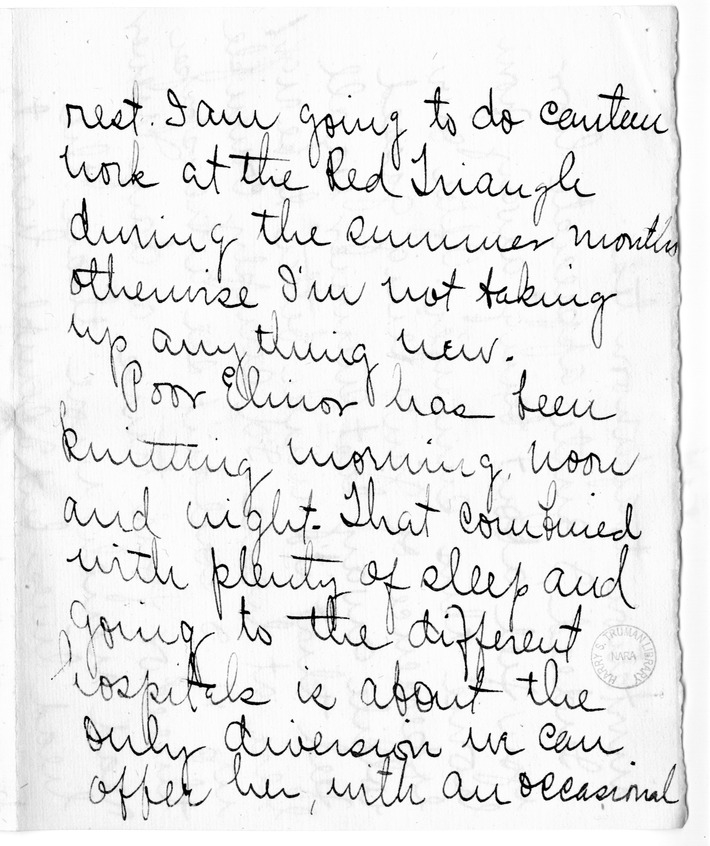 rest. I am going to do canteen
work at the Red Triangle
during the summer months
otherwise I'm not taking
up anything new.
Poor Elinor has been
knitting morning, noon
and night. That combined
with plenty of sleep and
going to the different
hospitals is about the
only diversion we can
offer her, with an occasional
HARRY S. TRUMAN LIBRARY
NARA